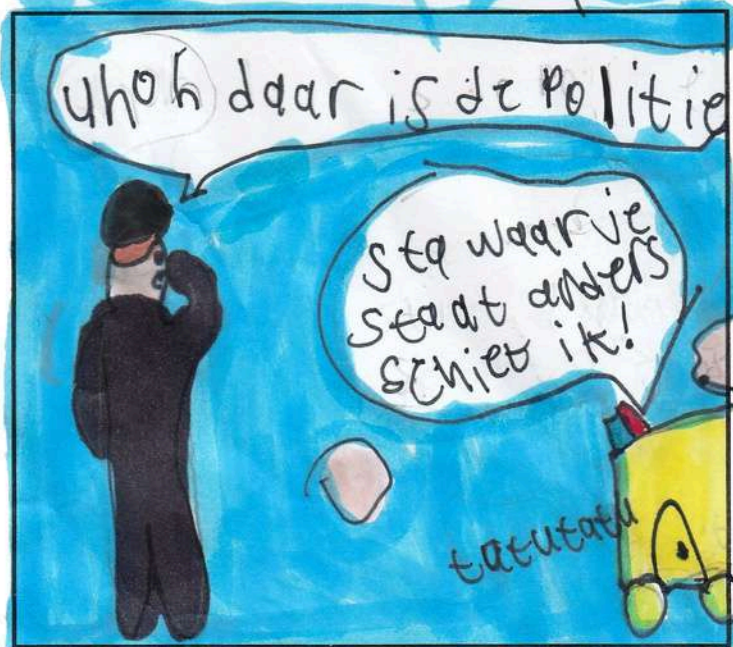 uhoh daar is de politie
sta waar je
staat anders
schiet ik!
tatutatu